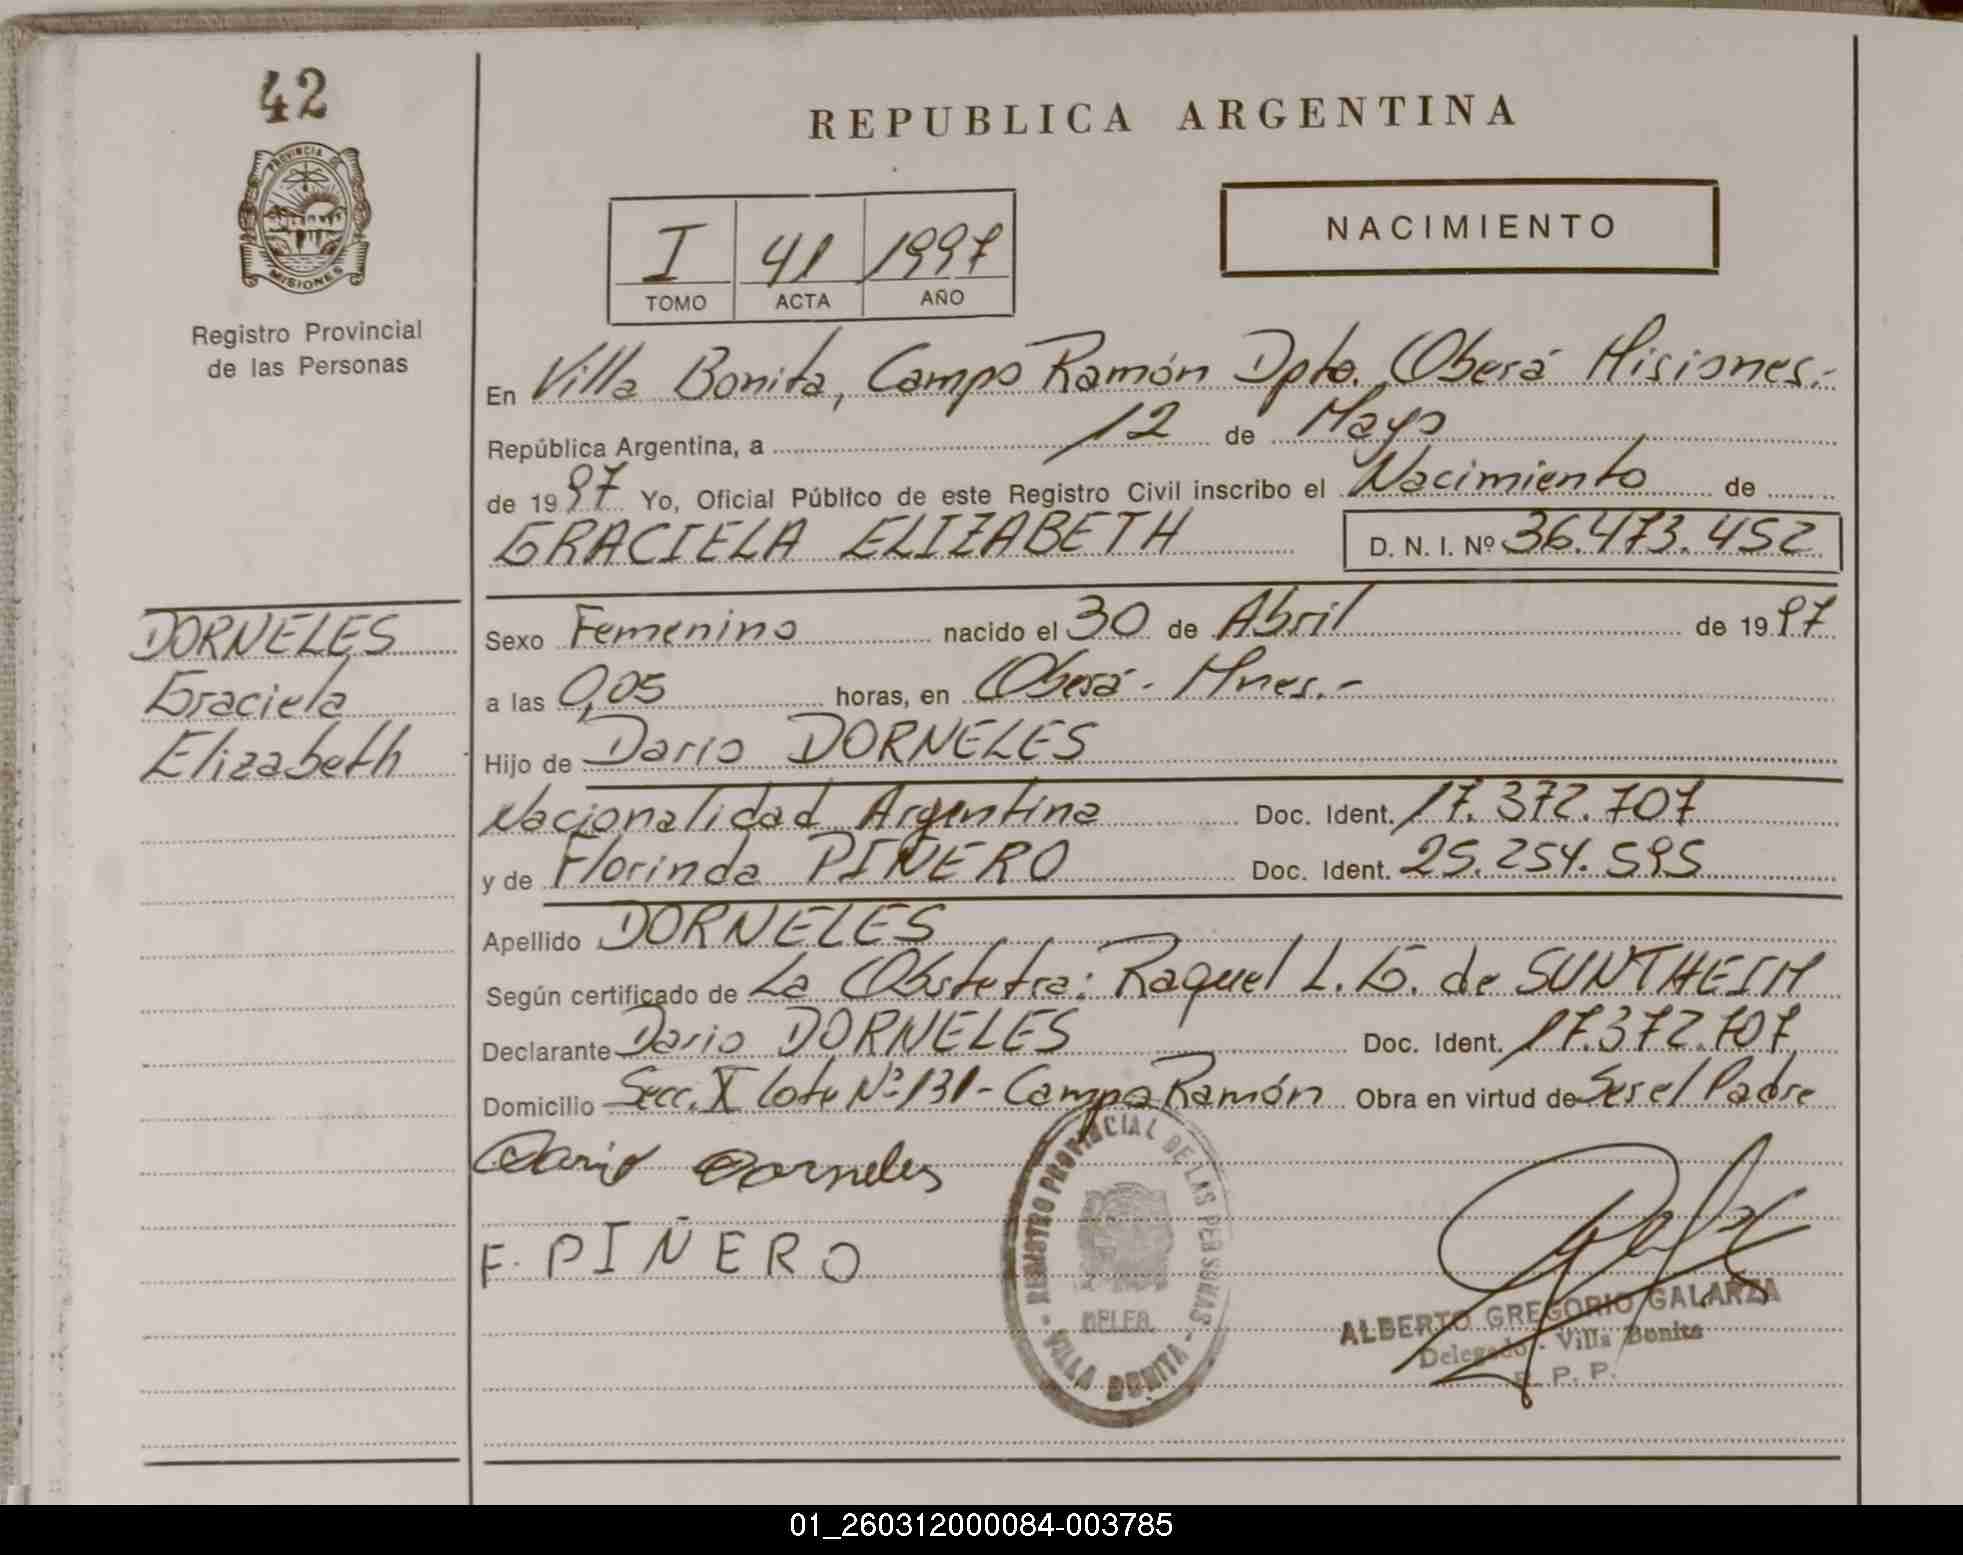 42
REPUBLICA ARGENTINA
PROVINCIA DE
MISIONES
NACIMIENTO
I 41 1997
TOMO ACTA AÑO
Registro Provincial
de las Personas
En Villa Bonita, Campo Ramón Dpto. Oberá Misiones.-
República Argentina, a 12 de Mayo
de 1997 Yo, Oficial Público de este Registro Civil inscribo el Nacimiento de
GRACIELA ELIZABETH D. N. I. Nº 36.473.452
DORNELES
Graciela
Elizabeth
Sexo Femenino nacido el 30 de Abril de 1997
a las 0,05 horas, en Oberá - Mnes.-
Hijo de Dario DORNELES
Nacionalidad Argentina Doc. Ident. 17.372.707
y de Florinda PIÑERO Doc. Ident. 25.254.595
Apellido DORNELES
Según certificado de La Obstetra: Raquel L. G. de SUNTHEIM
Declarante Dario DORNELES Doc. Ident. 17.372.707
Domicilio Secc. X lote Nº 131 - Campo Ramón Obra en virtud de Ser el Padre
Dario Dorneles
F. PIÑERO
REGISTRO PROVINCIAL DE LAS PERSONAS
- VILLA BONITA -
ALBERTO GREGORIO GALARZA
Delegado - Villa Bonita
R. P. P.
01_260312000084-003785